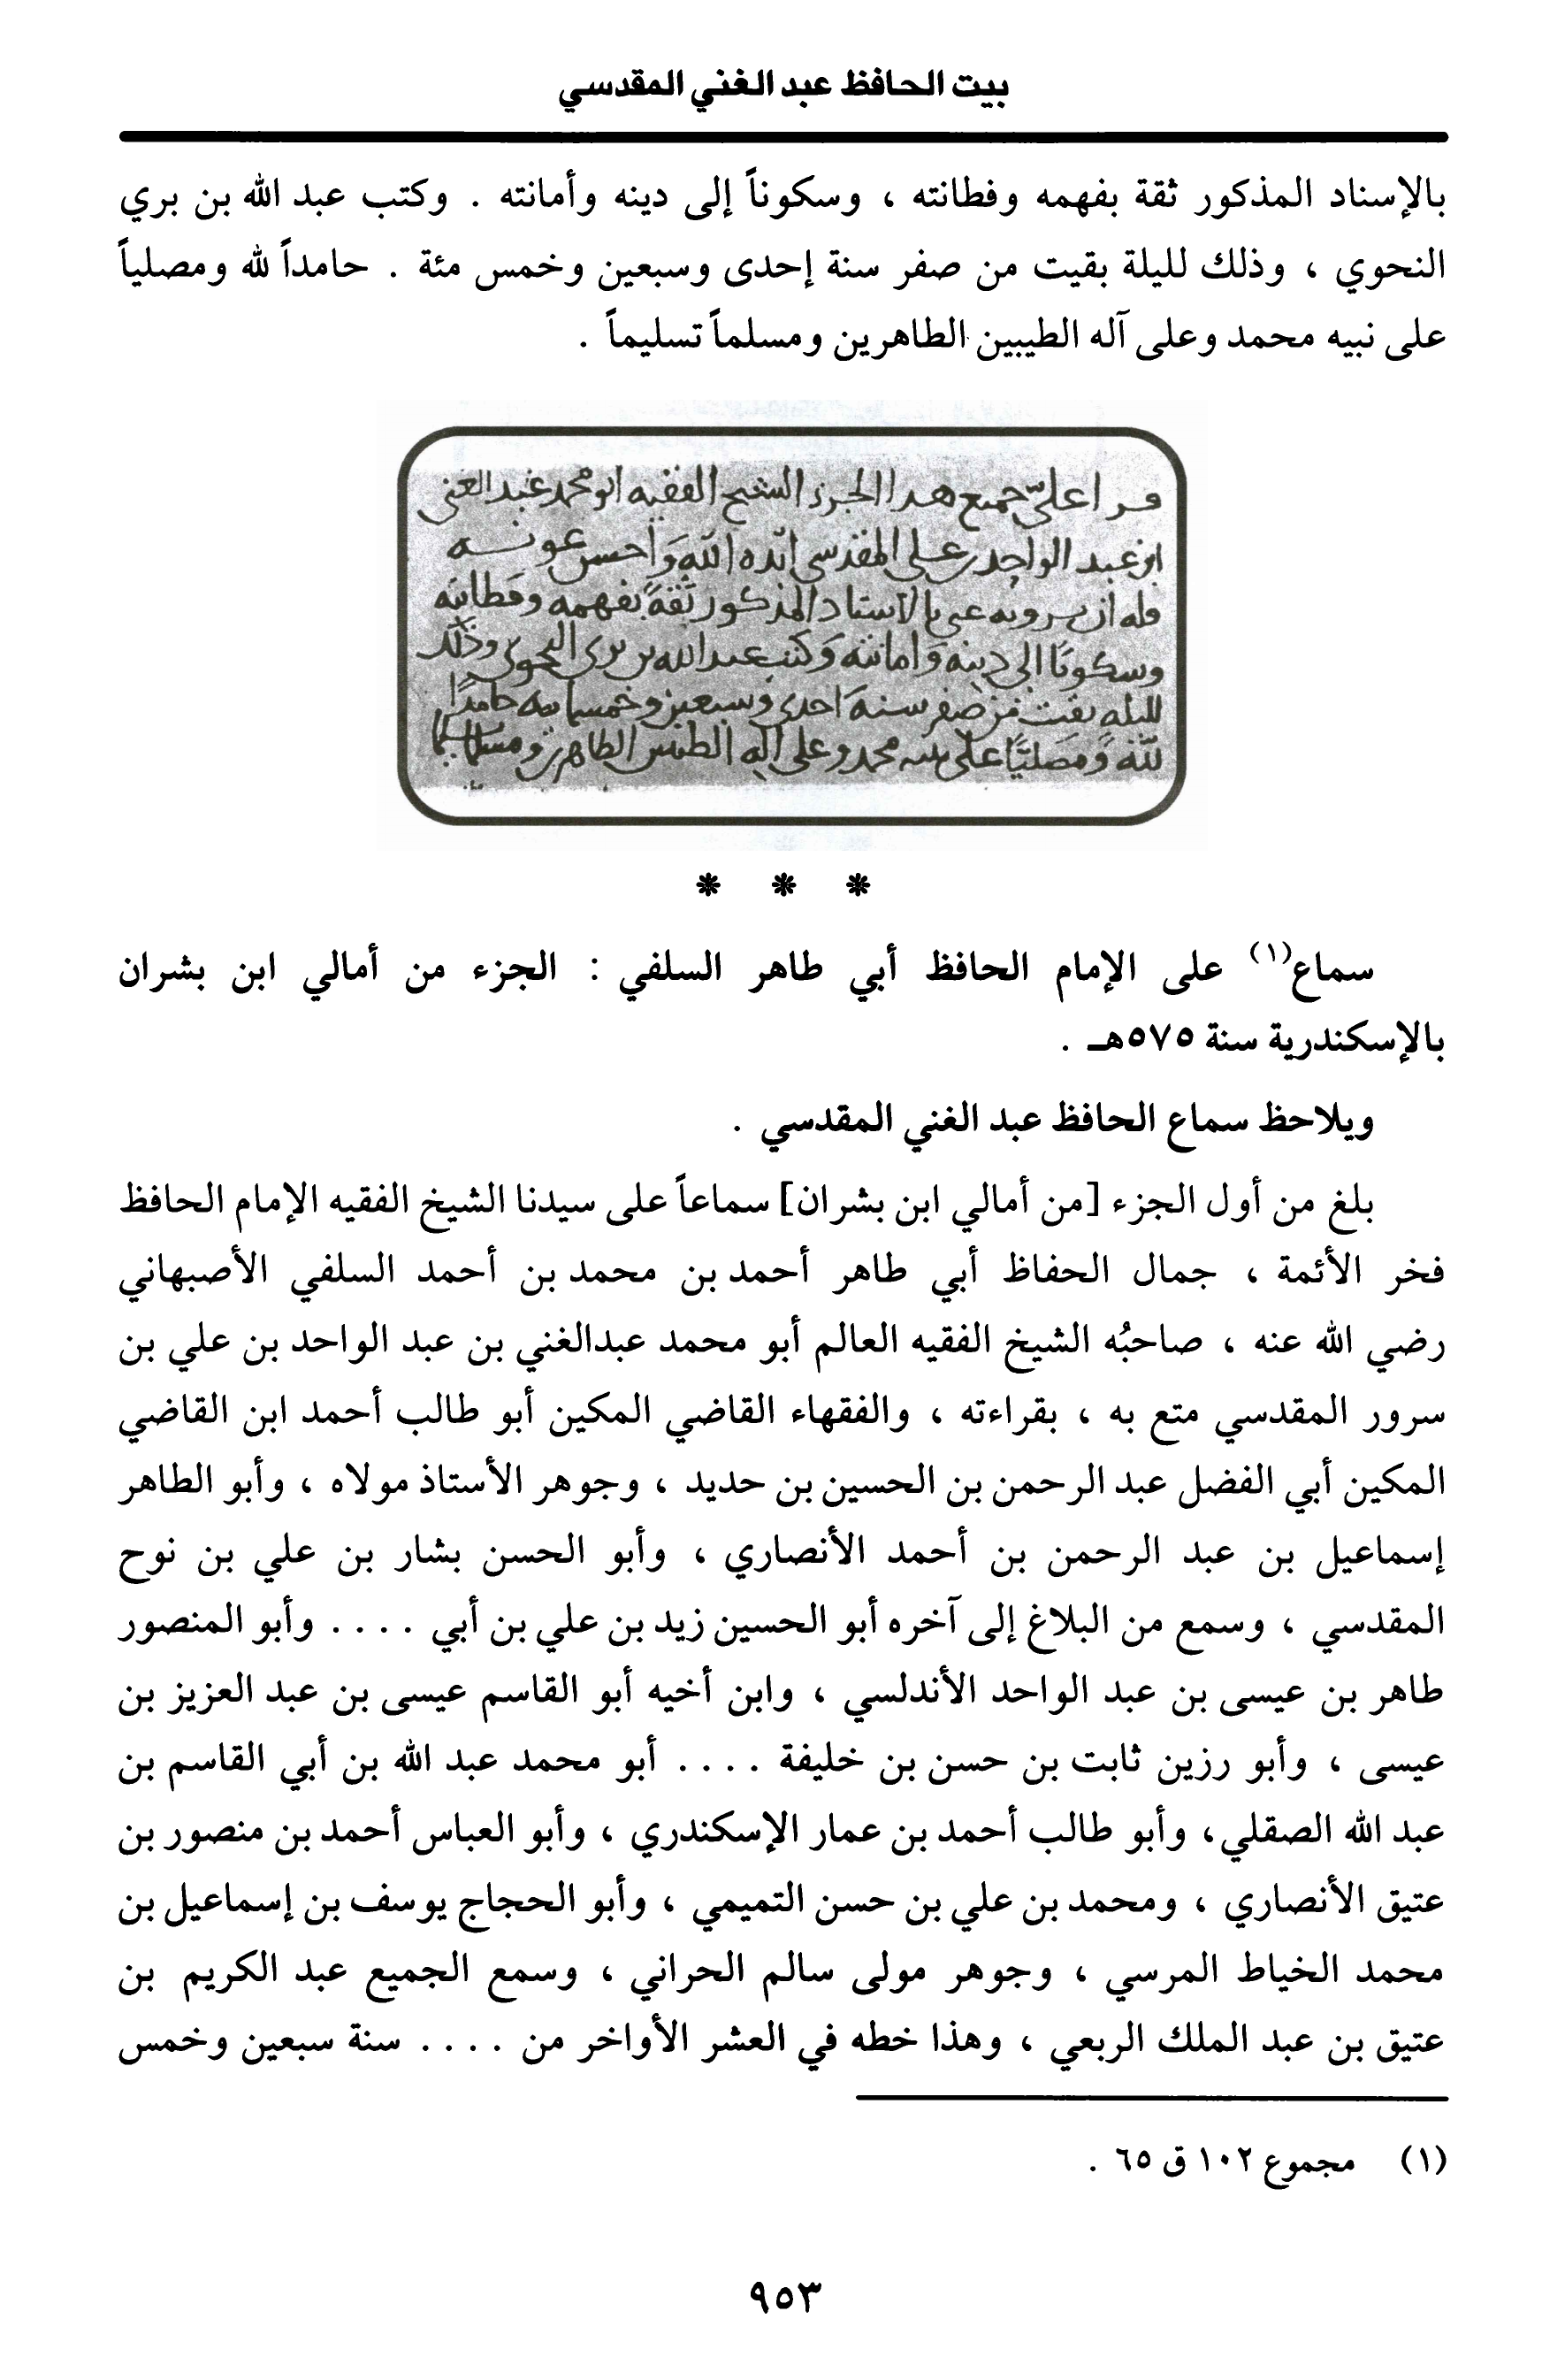 بيت الحافظ عبد الغني المقدسي
بالإسناد المذكور ثقة بفهمه وفطانته ، وسكوناً إلى دينه وأمانته . وكتب عبد الله بن بري
النحوي ، وذلك لليلة بقيت من صفر سنة إحدى وسبعين وخمس مئة . حامداً لله ومصلياً
على نبيه محمد وعلى آله الطيبين الطاهرين ومسلماً تسليماً .
قرا علىّ جميع هدا الجزء الشيخ الفقيه ابو محمد عبد الغنى
ابن عبد الواحد بن على المقدسى ايّده اللّه وَاحسن عونه
وله ان يرويه عنى بالاسناد المذكور ثقةً بفهمه وفطانته
وسكونًا الى دينه وَامانته وَكتب عبد الله بن برى النحوى وذلك
لليله بقيت من صفر سنة احدى وسبعين وخمسمايه حامدًا
للّه وَمصَليًّا على نبيه محمد وعلى اله الطيبين الطاهرين ومسلما
* * *
سماع(١) على الإمام الحافظ أبي طاهر السلفي : الجزء من أمالي ابن بشران
بالإسكندرية سنة ٥٧٥هـ .
ويلاحظ سماع الحافظ عبد الغني المقدسي .
بلغ من أول الجزء [من أمالي ابن بشران] سماعاً على سيدنا الشيخ الفقيه الإمام الحافظ
فخر الأئمة ، جمال الحفاظ أبي طاهر أحمد بن محمد بن أحمد السلفي الأصبهاني
رضي الله عنه ، صاحبُه الشيخ الفقيه العالم أبو محمد عبدالغني بن عبد الواحد بن علي بن
سرور المقدسي متع به ، بقراءته ، والفقهاء القاضي المكين أبو طالب أحمد ابن القاضي
المكين أبي الفضل عبد الرحمن بن الحسين بن حديد ، وجوهر الأستاذ مولاه ، وأبو الطاهر
إسماعيل بن عبد الرحمن بن أحمد الأنصاري ، وأبو الحسن بشار بن علي بن نوح
المقدسي ، وسمع من البلاغ إلى آخره أبو الحسين زيد بن علي بن أبي . . . . وأبو المنصور
طاهر بن عيسى بن عبد الواحد الأندلسي ، وابن أخيه أبو القاسم عيسى بن عبد العزيز بن
عيسى ، وأبو رزين ثابت بن حسن بن خليفة . . . . أبو محمد عبد الله بن أبي القاسم بن
عبد الله الصقلي، وأبو طالب أحمد بن عمار الإسكندري ، وأبو العباس أحمد بن منصور بن
عتيق الأنصاري ، ومحمد بن علي بن حسن التميمي ، وأبو الحجاج يوسف بن إسماعيل بن
محمد الخياط المرسي ، وجوهر مولى سالم الحراني ، وسمع الجميع عبد الكريم بن
عتيق بن عبد الملك الربعي ، وهذا خطه في العشر الأواخر من . . . . سنة سبعين وخمس
(١) مجموع ١٠٢ ق ٦٥ .
٩٥٣